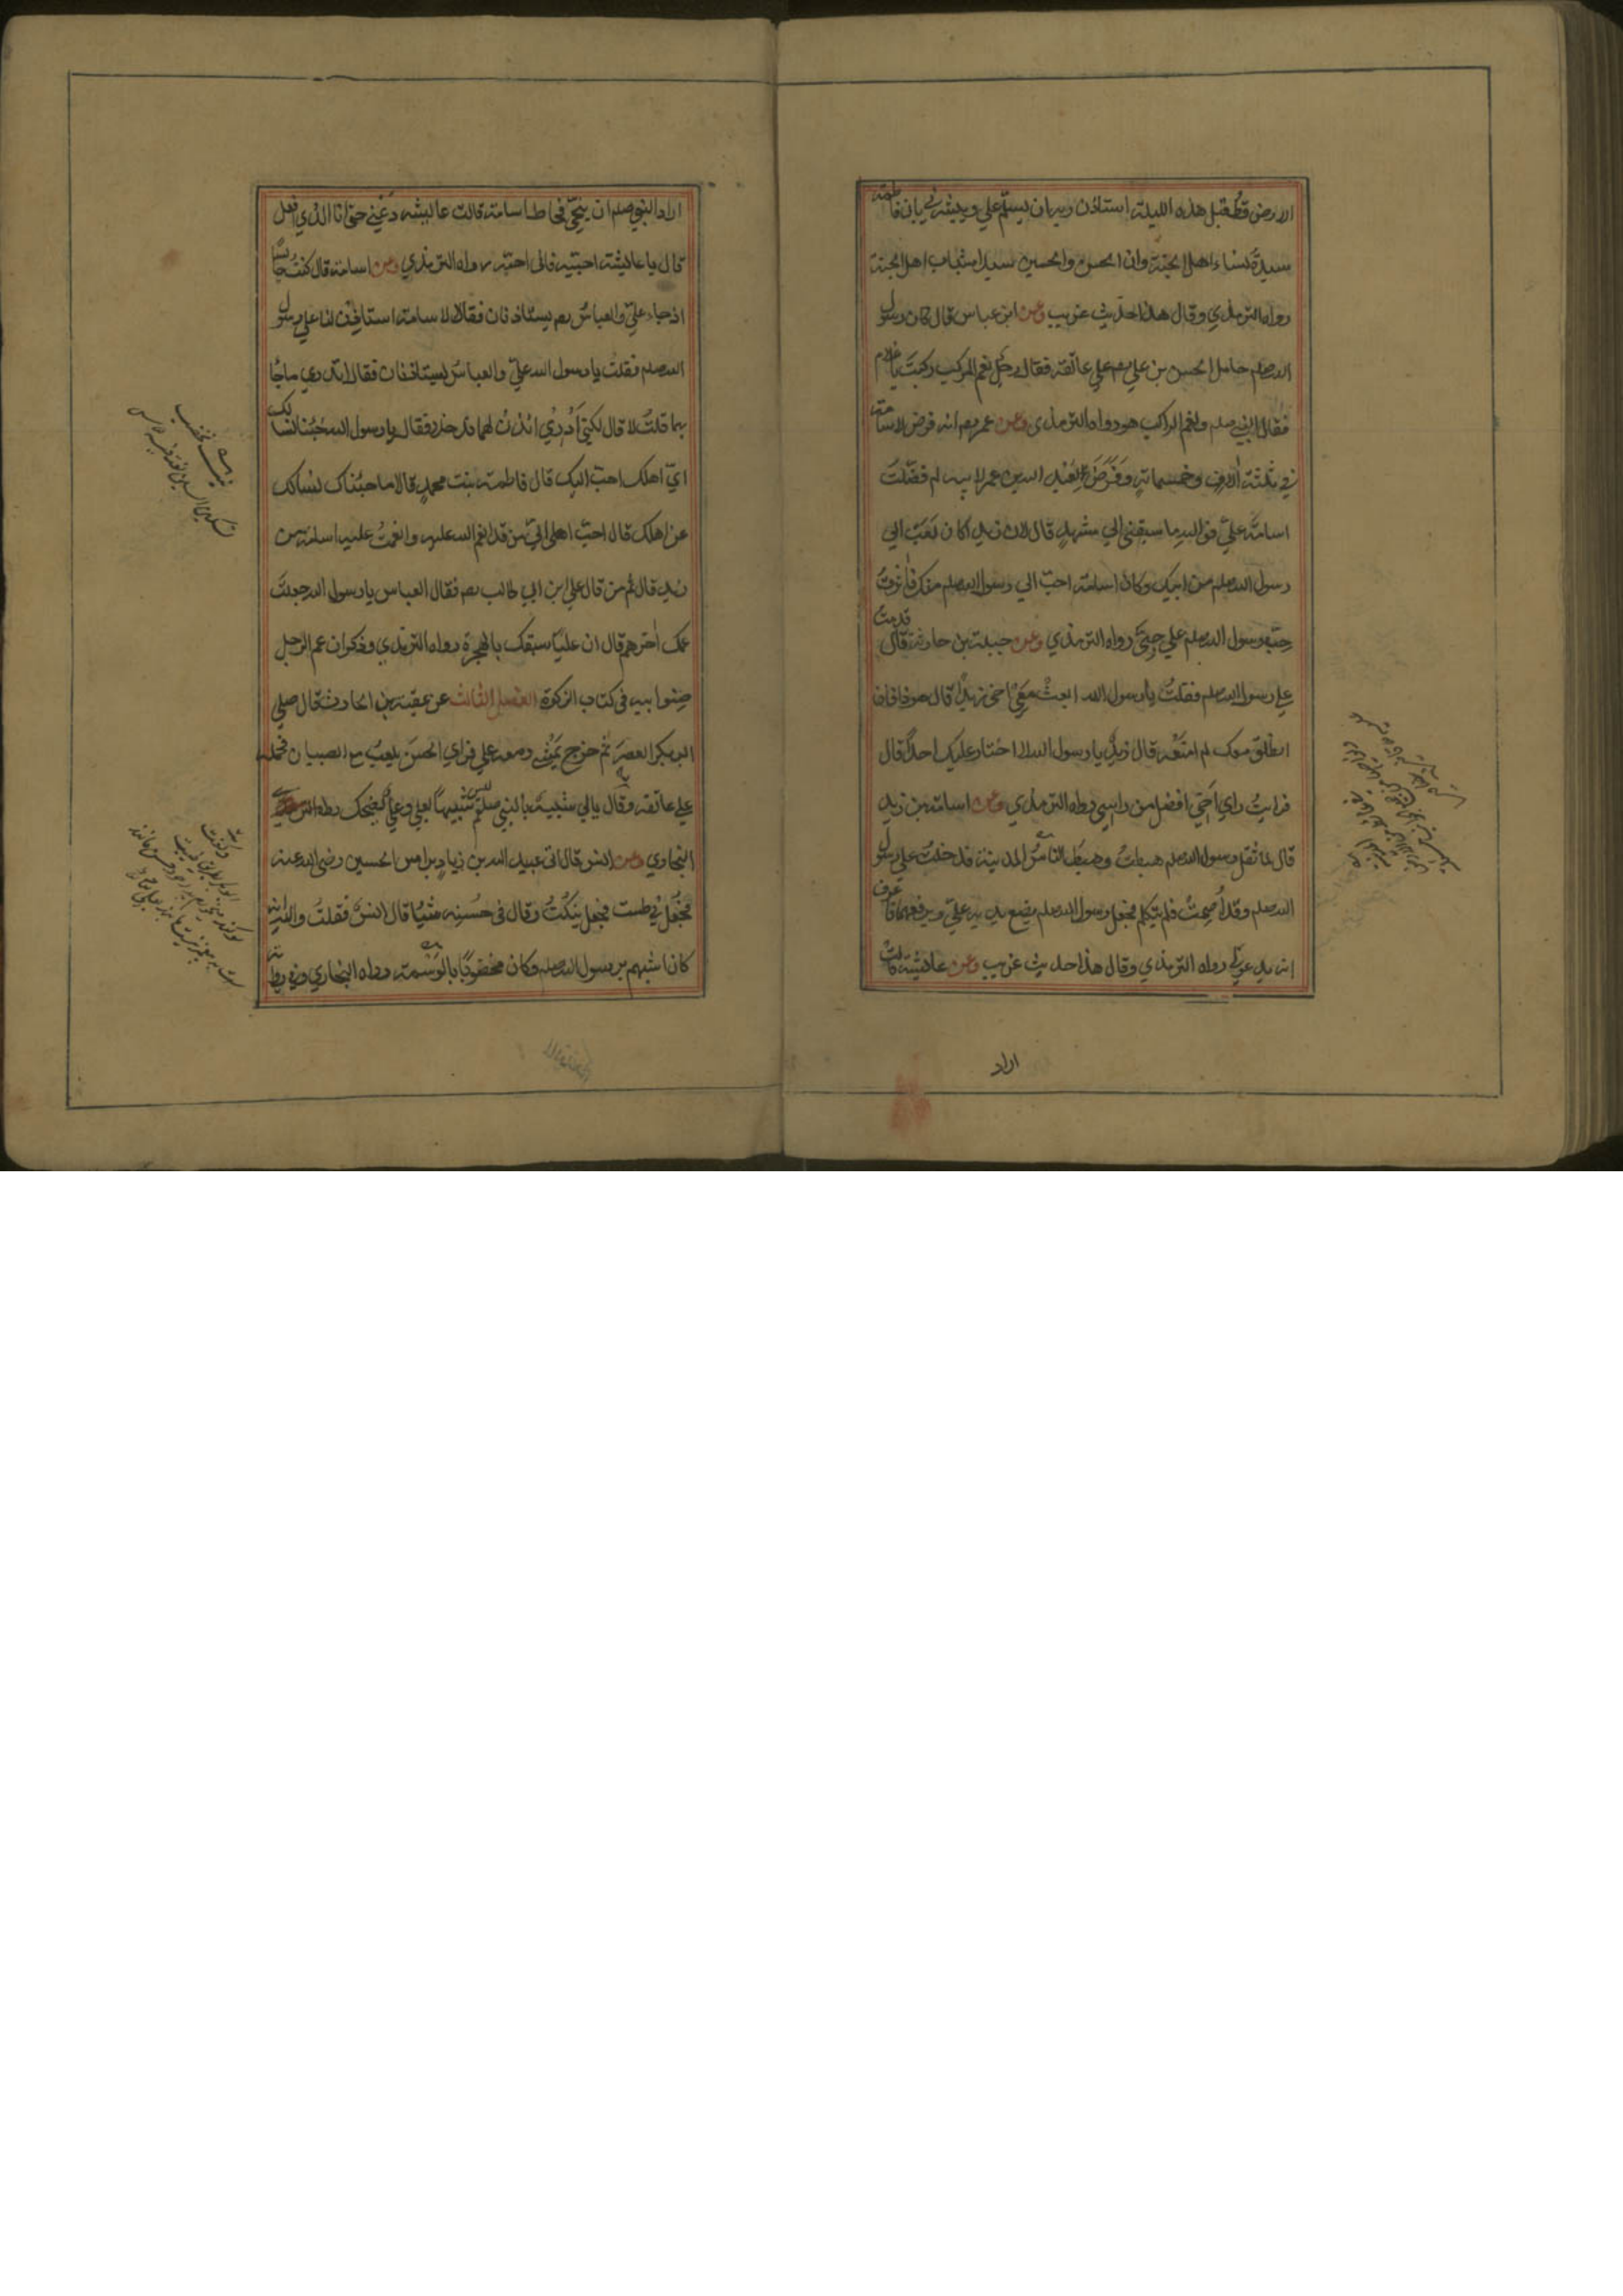 الارض قط قبل هذه الليلة استاذن ربه ان يسلم علي ويبشرني بان فاطمة
سيدة نساء اهل الجنة وان الحسن والحسين سيدا شباب اهل الجنة
رواه الترمذي وقال هذا حديث غريب وعن ابن عباس قال كان رسول
الله صلعم حامل الحسن بن علي رض علي عاتقه فقال رجل نعم المركب ركبت يا غلام
فقال النبي صلعم ونعم الراكب هو رواه الترمذي وعن عمر رض انه فرض لاسامة
في ثلثة آلاف وخمسمائة وفرض لعبد الله بن عمر لابيه لم فضلت
اسامة علي فوالله ما سبقني الي مشهد قال لان زيدا كان احب الي
رسول الله صلعم من ابيك وكان اسامة احب الي رسول الله صلعم منك فاثرت
حب رسول الله صلعم علي حبي رواه الترمذي وعن جبلة بن حارثة قال قدمت
علي رسول الله صلعم فقلت يا رسول الله ابعث معي اخي زيدا قال هو ذا فان
انطلق معك لم امنعه قال زيد يا رسول الله لا اختار عليك احدا قال
فرايت راي اخي افضل من رايي رواه الترمذي وعن اسامة بن زيد
قال لما ثقل رسول الله صلعم هبطت وهبط الناس المدينة فدخلت علي رسول
الله صلعم وقد اصمت فلم يتكلم فجعل رسول الله صلعم يضع يديه علي ويرفعهما فاعرف
انه يدعو لي رواه الترمذي وقال هذا حديث غريب وعن عائشة قالت
اراد
اراد النبي صلعم ان ينحي مخاط اسامة قالت عائشة دعني حتي انا الذي افعل
قال يا عائشة احبيه فاني احبه رواه الترمذي وعن اسامة قال كنت جالسا
اذ جاء علي والعباس رض يستاذنان فقالا لاسامة استاذن لنا علي رسول
الله صلعم فقلت يا رسول الله علي والعباس يستاذنان فقال اتدري ما جا
بهما قلت لا قال لكني ادري ائذن لهما فدخلا فقالا يا رسول الله جئناك نسالك
اي اهلك احب اليك قال فاطمة بنت محمد قالا ما جئناك نسالك
عن اهلك قال احب اهلي الي من قد انعم الله عليه وانعمت عليه اسامة بن
زيد قال ثم من قال علي ابن ابي طالب رض فقال العباس يا رسول الله جعلت
عمك آخرهم قال ان عليا سبقك بالهجرة رواه الترمذي وذكر ان عم الرجل
صنو ابيه في كتاب الزكوة الفصل الثالث عن عقبة بن الحارث قال صلي
ابو بكر العصر ثم خرج يمشي ومعه علي فراي الحسن يلعب مع الصبيان فحمله
علي عاتقه وقال بابي شبيه بالنبي صلعم ليس شبيها بعلي وعلي يضحك رواه
البخاري وعن انس قال اتي عبيد الله بن زياد براس الحسين رضي الله عنه
فجعل في طست فجعل ينكت وقال في حسنه شيئا قال انس فقلت والله انه
كان اشبههم برسول الله صلعم وكان مخضوبا بالوسمة رواه البخاري وفي رواية